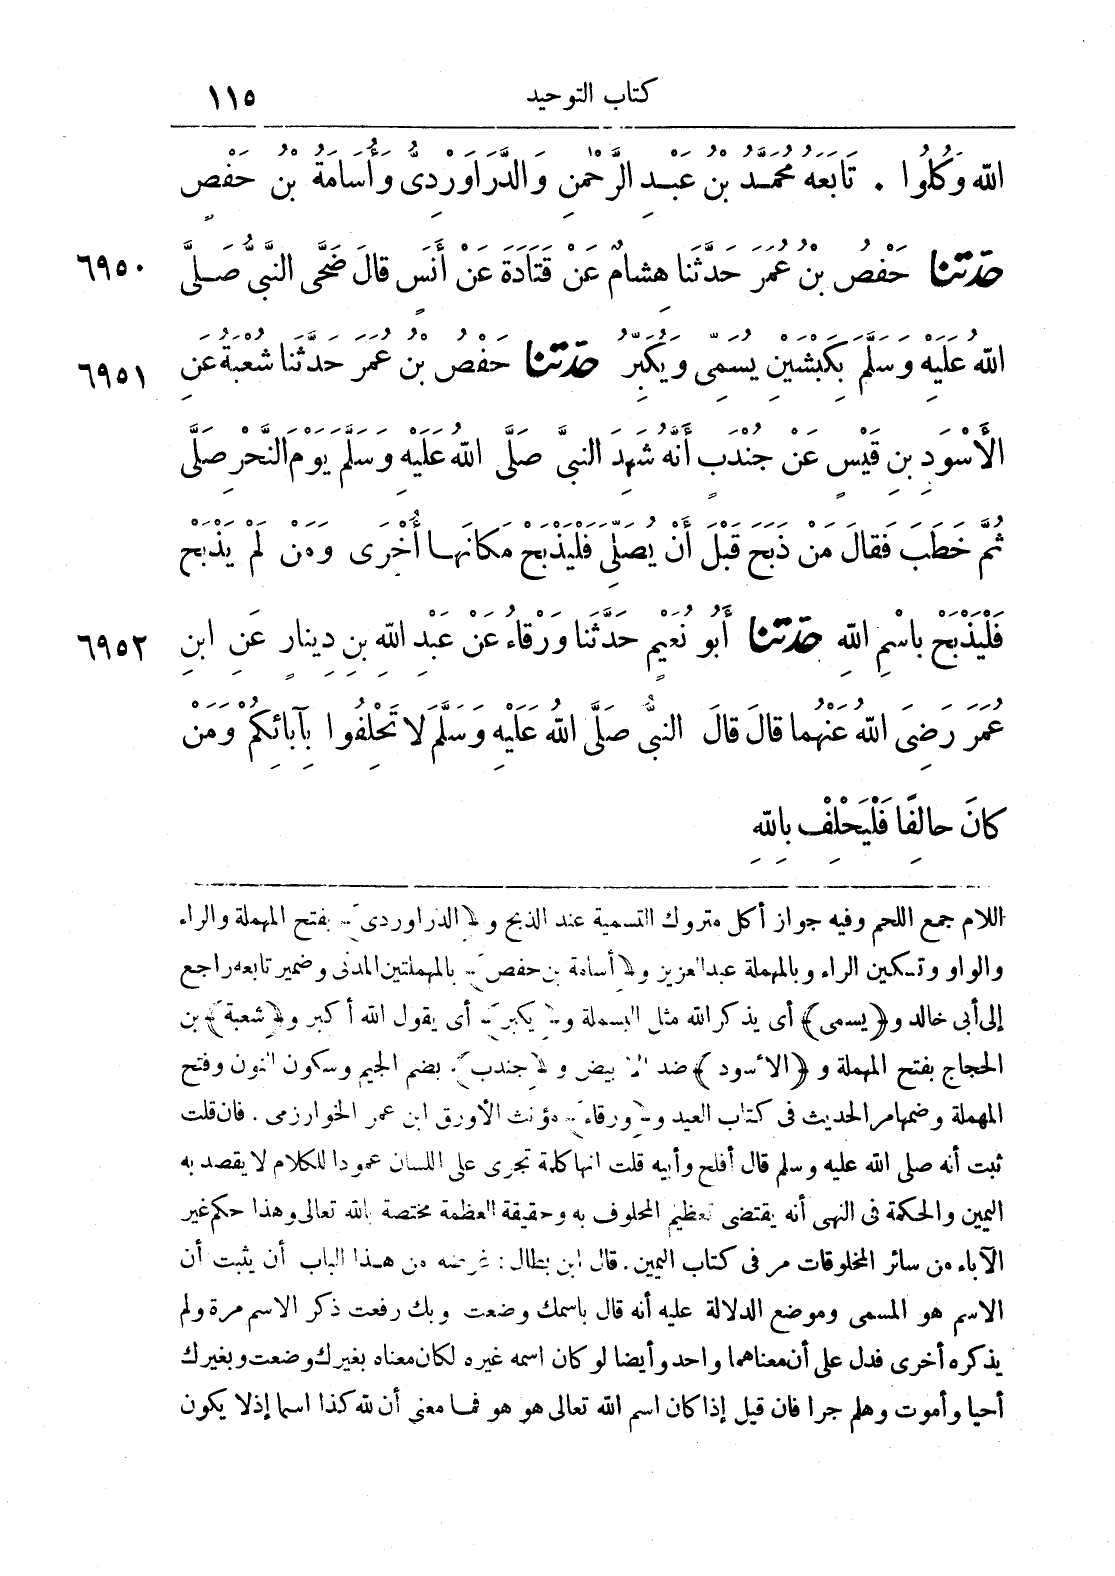 كتاب التوحيد ١١٥
اللهِ وَكُلُوا . تَابَعَهُ مُحَمَّدُ بْنُ عَبْدِ الرَّحْمٰنِ وَالدَّرَاوَرْدِىُّ وَأُسَامَةُ بْنُ حَفْصٍ
٦٩٥٠ حَدَّثَنَا حَفْصُ بْنُ عُمَرَ حَدَّثَنَا هِشَامٌ عَنْ قَتَادَةَ عَنْ أَنَسٍ قَالَ ضَحَّى النَّبِىُّ صَلَّى
٦٩٥١ اللهُ عَلَيْهِ وَسَلَّمَ بِكَبْشَيْنِ يُسَمِّى وَيُكَبِّرُ حَدَّثَنَا حَفْصُ بْنُ عُمَرَ حَدَّثَنَا شُعْبَةُ عَنِ
الأَسْوَدِ بْنِ قَيْسٍ عَنْ جُنْدَبٍ أَنَّهُ شَهِدَ النَّبىَّ صَلَّى اللهُ عَلَيْهِ وَسَلَّمَ يَوْمَ النَّحْرِ صَلَّى
ثُمَّ خَطَبَ فَقَالَ مَنْ ذَبَحَ قَبْلَ أَنْ يُصَلِّىَ فَلْيَذْبَحْ مَكَانَهَا أُخْرَى وَمَنْ لَمْ يَذْبَحْ
٦٩٥٢ فَلْيَذْبَحْ بِاسْمِ اللهِ حَدَّثَنَا أَبُو نُعَيْمٍ حَدَّثَنَا وَرْقَاءُ عَنْ عَبْدِ اللهِ بْنِ دِينَارٍ عَنِ ابْنِ
عُمَرَ رَضِىَ اللهُ عَنْهُمَا قَالَ قَالَ النَّبىُّ صَلَّى اللهُ عَلَيْهِ وَسَلَّمَ لَا تَحْلِفُوا بِآبَائِكُمْ وَمَنْ
كَانَ حَالِفًا فَلْيَحْلِفْ بِاللهِ
اللام جمع اللحم وفيه جواز أكل متروك التسمية عند الذبح و ﴿الدراوردى﴾ بفتح المهملة والراء
والواو وتسكين الراء وبالمهملة عبدالعزيز و﴿أسامة بن حفص﴾ بالمهملتين المدنى وضمير تابعه راجع
إلى أبى خالد و﴿يسمى﴾ أى يذكر الله مثل البسملة و﴿يكبر﴾ أى يقول الله أكبر و﴿شعبة﴾ بن
الحجاج بفتح المهملة و ﴿الأسود﴾ ضد الأبيض و ﴿جندب﴾ بضم الجيم وسكون النون وفتح
المهملة وضمها مر الحديث فى كتاب العيد و﴿ورقاء﴾ مؤنث الأورق ابن عمر الخوارزمى . فان قلت
ثبت أنه صلى الله عليه وسلم قال أفلح وأبيه قلت انها كلمة تجرى على اللسان عمودا للكلام لا يقصد به
اليمين والحكمة فى النهى أنه يقتضى تعظيم المحلوف به وحقيقة العظمة مختصة بالله تعالى وهذا حكم غير
الآباء من سائر المخلوقات مر فى كتاب اليمين . قال ابن بطال : غرضه من هذا الباب أن يثبت أن
الاسم هو المسمى وموضع الدلالة عليه أنه قال باسمك وضعت وبك رفعت ذكر الاسم مرة ولم
يذكره أخرى فدل على أن معناهما واحد وأيضا لو كان اسمه غيره لكان معناه بغيرك وضعت وبغيرك
أحيا وأموت وهلم جرا فان قيل إذا كان اسم الله تعالى هو هو فما معنى أن لله كذا اسما إذ لا يكون